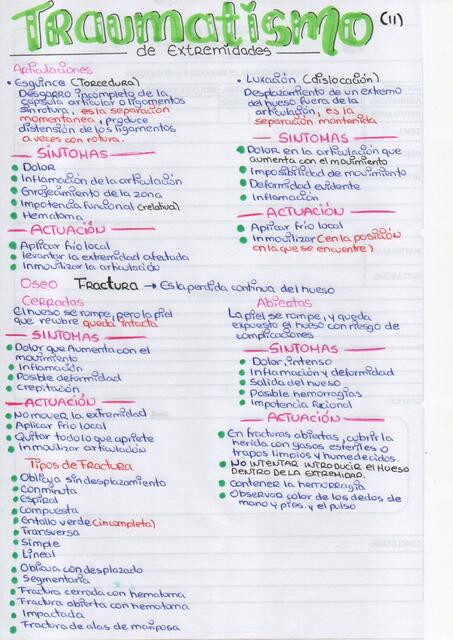 Traumatismo (11)
de Extremidades
Articulaciones
• Esguince (Torcedura)
Desgarro incompleto de la
cápsula articular o ligamentos
sin rotura, es la separación
momentanea, produce
distensión de los ligamentos
a veces con rotura.
SÍNTOMAS
• Dolor
• Inflamación de la articulación
• Enrojecimiento de la zona
• Impotencia funcional (relativa)
• Hematoma
ACTUACIÓN
• Aplicar frío local
• levantar la extremidad afectada
• Inmovilizar la articulación
• Luxación (dislocación)
Desplazamiento de un extremo
del hueso fuera de la
articulación, es la
separación mantenida
SÍNTOMAS
• Dolor en la articulación que
aumenta con el movimiento
• Imposibilidad de movimiento
• Deformidad evidente
• Inflamación
ACTUACIÓN
• Aplicar frío local
• Inmovilizar (en la posición
en la que se encuentre)
Oseo Fractura → Es la perdida continua del hueso
Cerradas
El hueso se rompe, pero la piel
que recubre queda intacta
SÍNTOMAS
• Dolor que Aumenta con el
movimiento
• Inflamación
• Posible deformidad
• Crepitación
ACTUACIÓN
• No mover la extremidad
• Aplicar frio local
• Quitar todo lo que apriete
• Inmovilizar articulación
Tipos de Fractura
• Oblicua sin desplazamiento
• Conminuta
• Espiral
• Compuesta
• En tallo verde (incompleta)
• Transversa
• Simple
• Lineal
• Oblicua con desplazado
• Segmentaria
• Fractura cerrada con hematoma
• Fractura abierta con hematoma
• Impactada
• Fractura de alas de mariposa
Abiertas
La piel se rompe, y queda
expuesto el hueso con riesgo de
complicaciones
SÍNTOMAS
• Dolor, intenso
• Inflamación y deformidad
• Salida del hueso
• Posible hemorragias
• Impotencia
ACTUACIÓN
• En fracturas abiertas, cubrir la
herida con gasas esteriles o
trapos limpios y humedecidos.
• NO INTENTAR INTRODUCIR EL HUESO
DENTRO DE LA EXTREMIDAD.
• contener la hemorragia
• Observar color de los dedos de
mano y pies, y el pulso